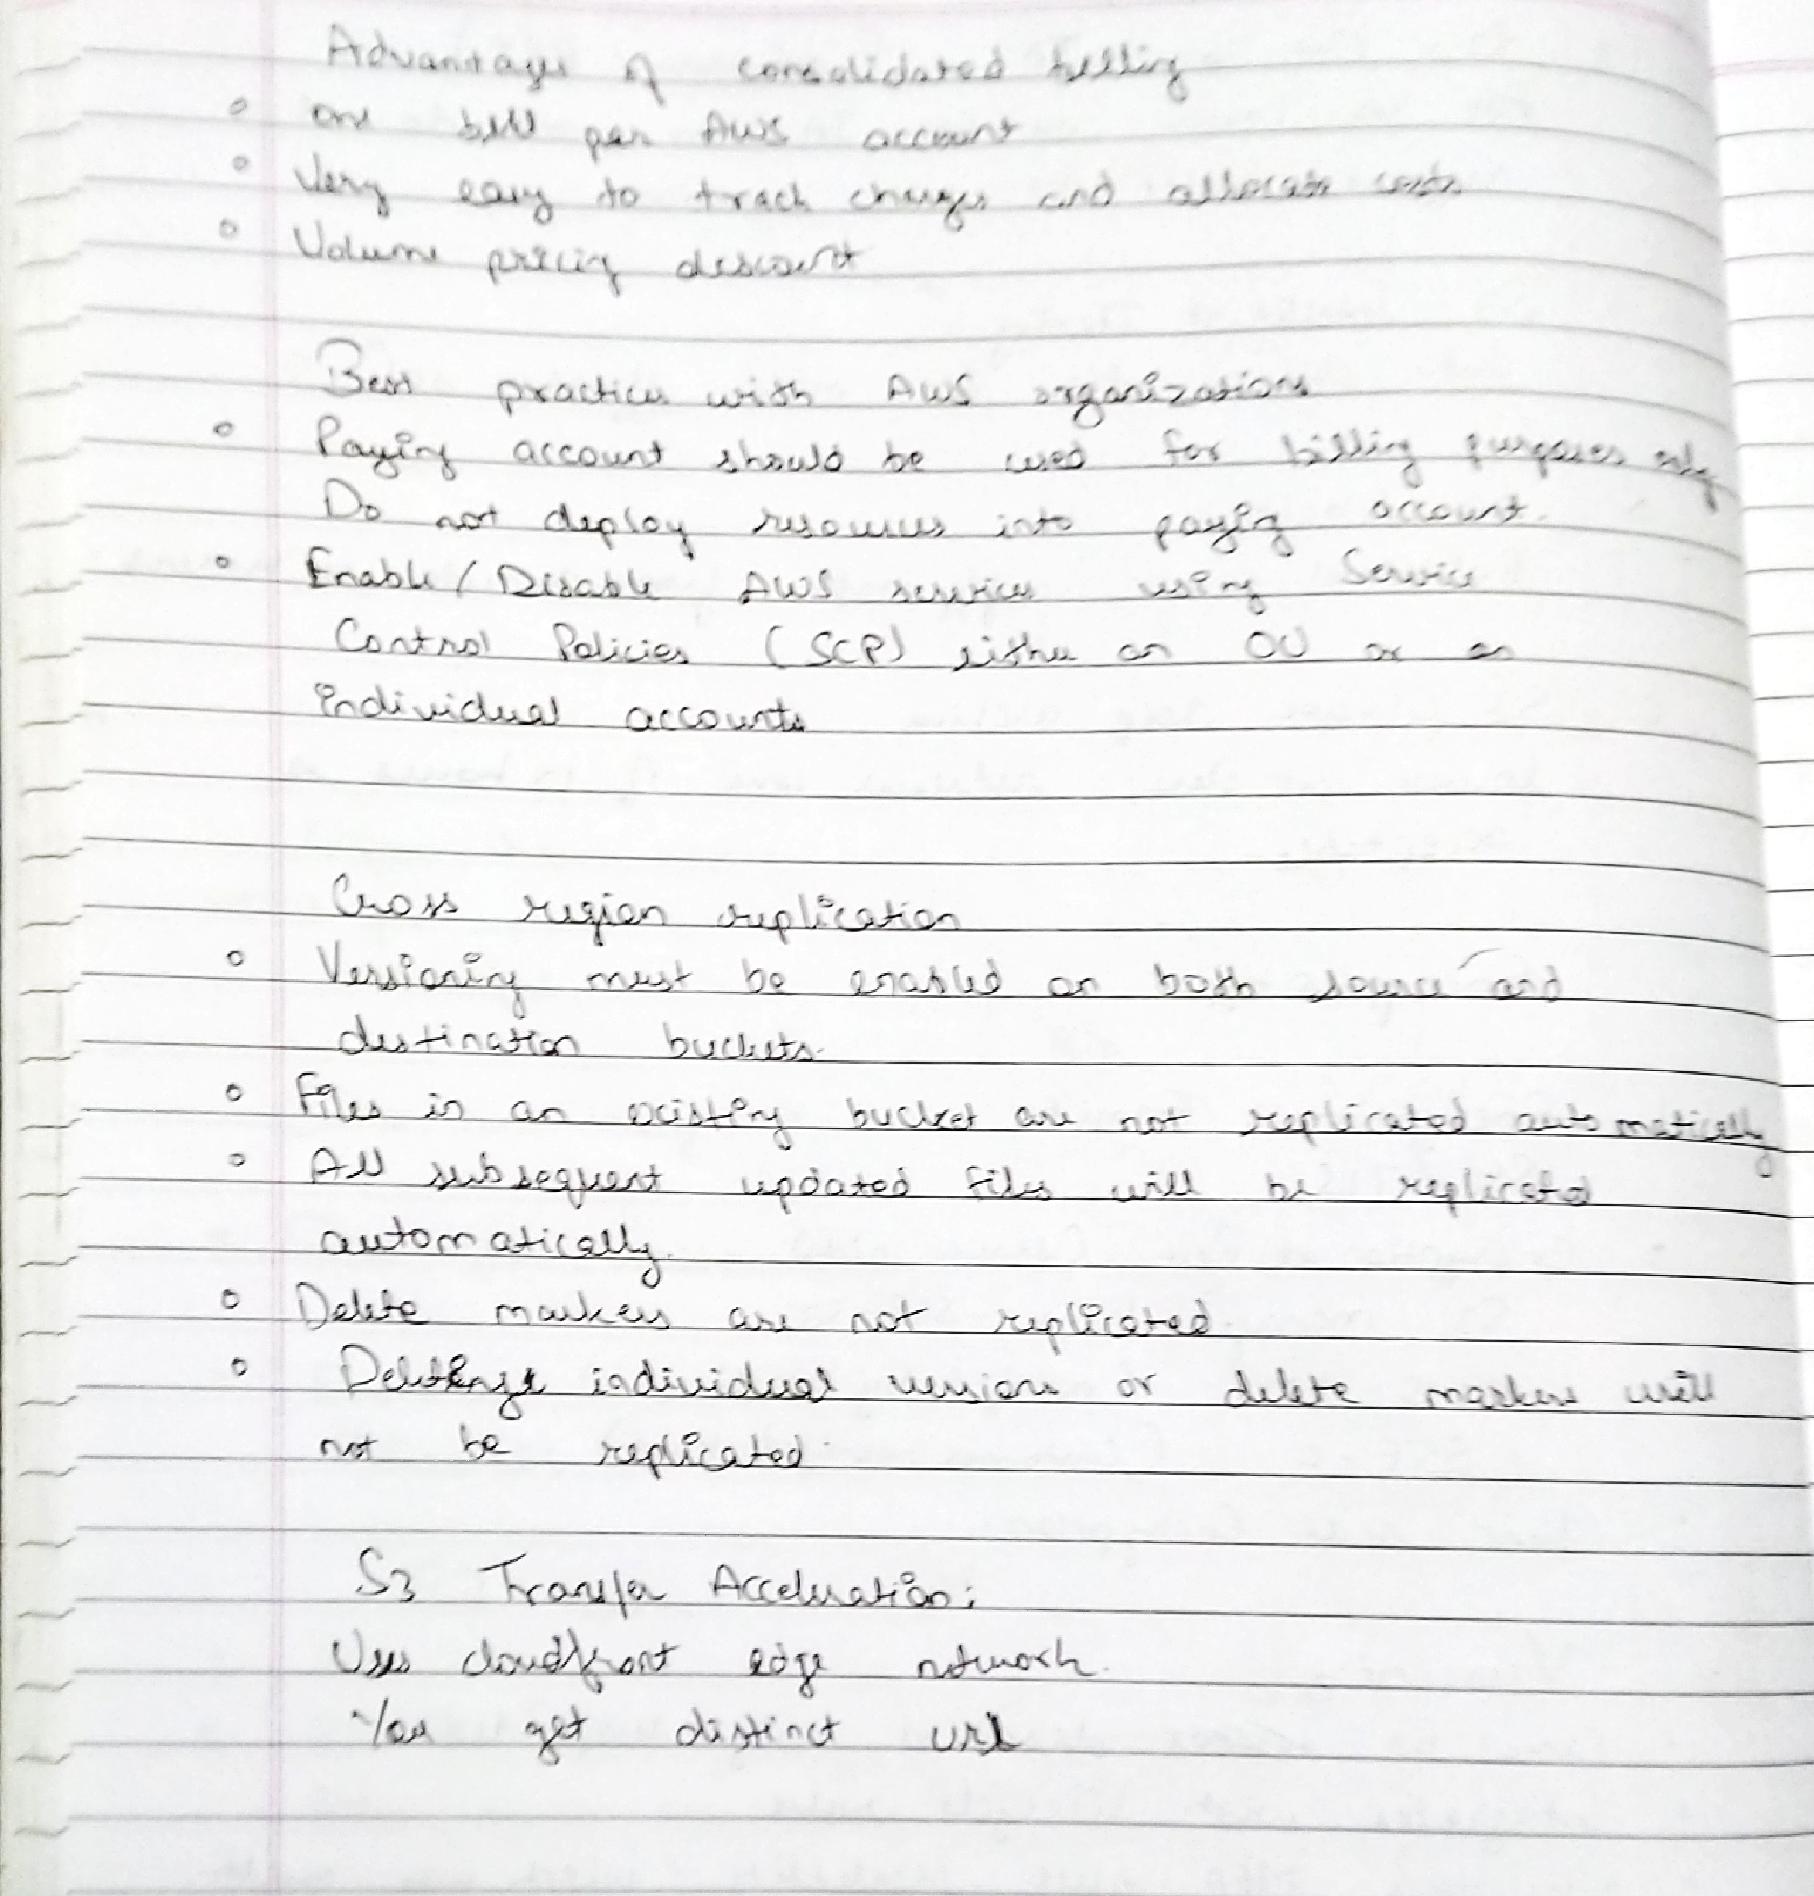 Advantages of consolidated billing
° One bill per AWS account
° Very easy to track charges and allocate costs
° Volume pricing discount
Best practices with AWS organizations
° Paying account should be used for billing purposes only
Do not deploy resources into paying account.
° Enable / Disable AWS services using Service
Control Policies (SCP) either on OU or on
individual accounts
Cross region replication
° Versioning must be enabled on both source and
destination buckets.
° Files in an existing bucket are not replicated automatically
° All subsequent updated files will be replicated
automatically.
° Delete markers are not replicated
° Deleting individual versions or delete markers will
not be replicated.
S3 Transfer Acceleration:
Uses cloudfront edge network.
You get distinct url